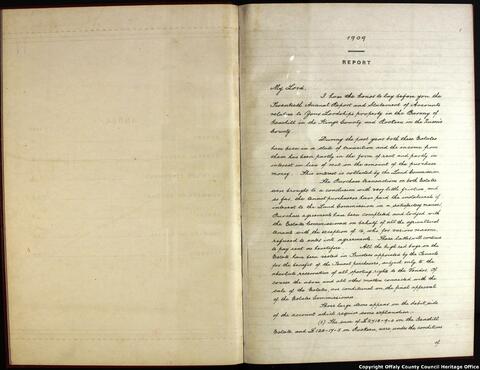 1909
REPORT
My Lord,
I have the honor to lay before you the
Twentieth Annual Report and Statement of Accounts
relative to Your Lordships property in the Barony of
Geashill in the Kings County and Rostean in the Queen's
County.
During the past year both these Estates
have been in a state of transition and the income from
them has been partly in the form of rent and partly in
interest in lieu of rent on the amount of the purchase
money. This interest is collected by the Land Commission
The Purchase transactions on both Estates
were brought to a conclusion with very little friction and
so far, the tenant purchasers have paid the instalments of
interest to the Land Commission in a satisfactory manner
Purchase agreements have been completed and lodged with
the Estates Commissioners on behalf of all the agricultural
tenants with the exception of 16, who for various reasons,
refused to enter into agreements. These latter will continue
to pay rent as heretofore. All the high red bogs on the
Estate have been vested in Trustees appointed by the Tenants
for the benefit of the Tenant purchasers, subject only to the
absolute reservation of all sporting rights to the Vendor. Of
course the above and all other matters connected with the
sale of the Estates, are conditional on the final approval
of the Estates Commissioners
Three large items appear on the debit side
of the account which require some explanation.
(1) The sum of on the Geashill
Estate and on were under the conditions
of
Copyright Offaly County Council Heritage Office